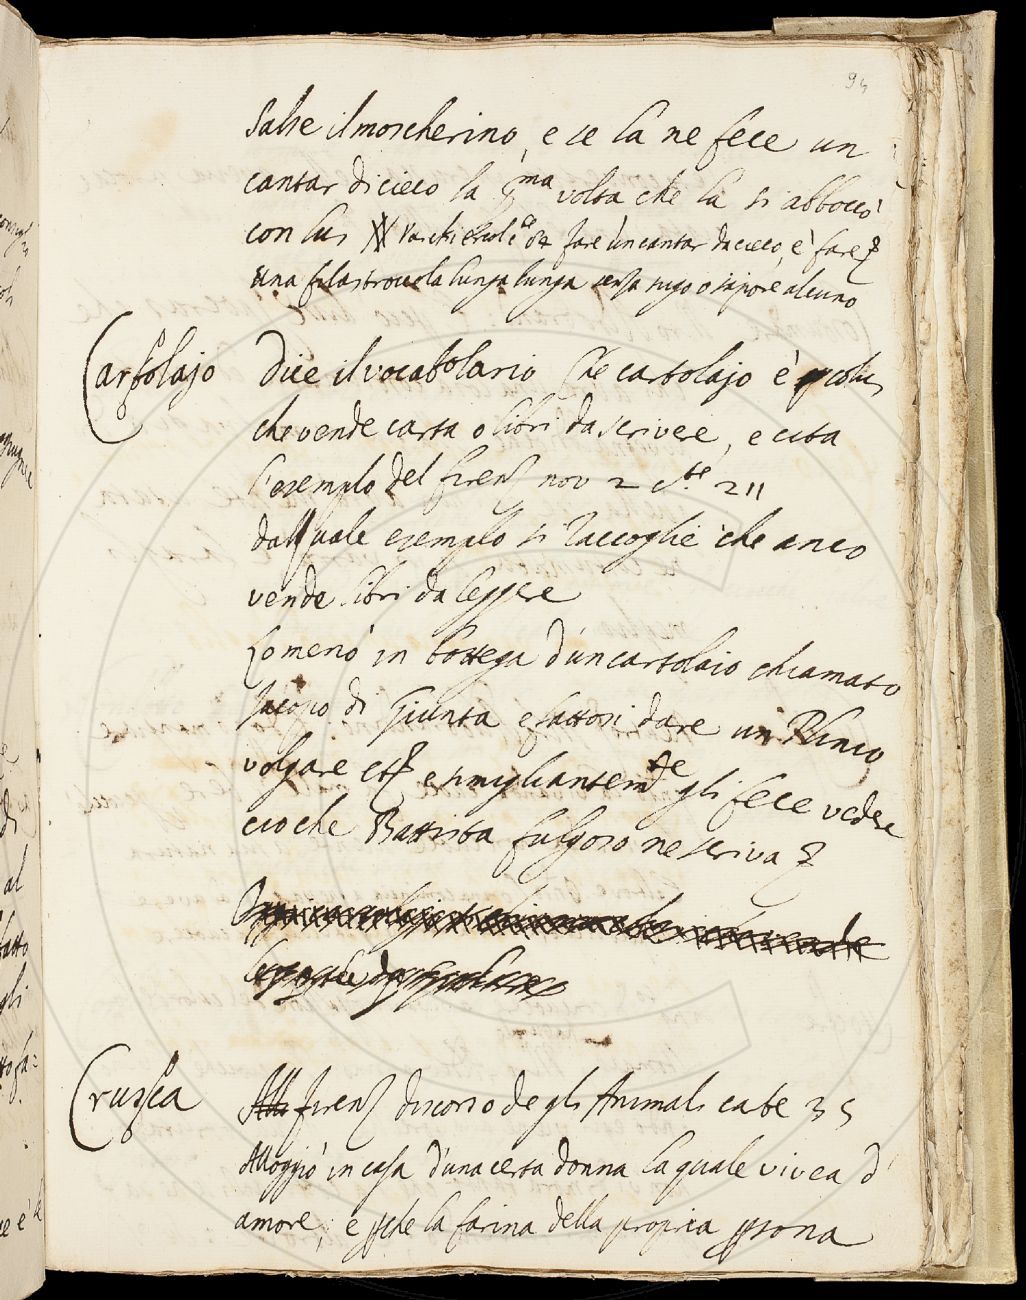 94
Salse il moscherino, e ce la ne fece un
cantar di cieco la pma volta che la si abboccò
con lui Varchi Ercol. 84 fare un cantar da cieco, è fare
una filastroccola lunga lunga senza sugo o sapore alcuno
Cartolajo Dice il vocabolario che cartolajo è colui
che vende carta o libri da scrivere, e cita
l'esemplo del firenz nov 2 cte 211
dal quale esemplo si raccoglie che anco
vende libri da leggere
Lo menò in bottega d'un cartolaio chiamato
Jacopo di Giunta e fattosi dare un Plinio
volgare etc e simigliantemte gli fece vedere
ciò che Battista fulgoso ne scriva
Crusca firenz discorso degli Animali cate 35
Alloggiò in casa d'una certa donna la quale vivea d'
amore, e pche la farina della propria psona